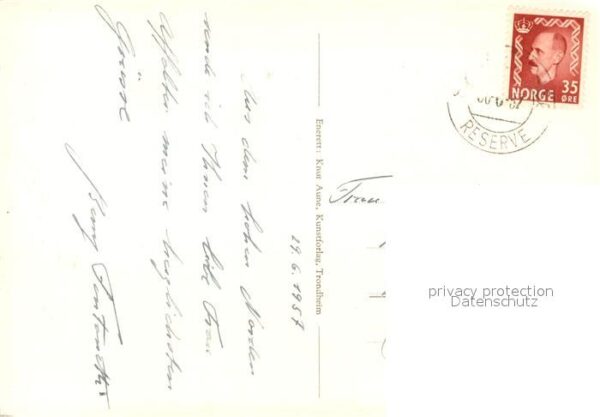 29. 6. 1957
Aus dem hohen Norden
sende ich Ihnen liebe Frau
meine herzlichsten
Grüsse
Enerett: Knut Aune, Kunstforlag, Trondheim
Frau
NORGE 35
ØRE
RESERVE
privacy protection
Datenschutz